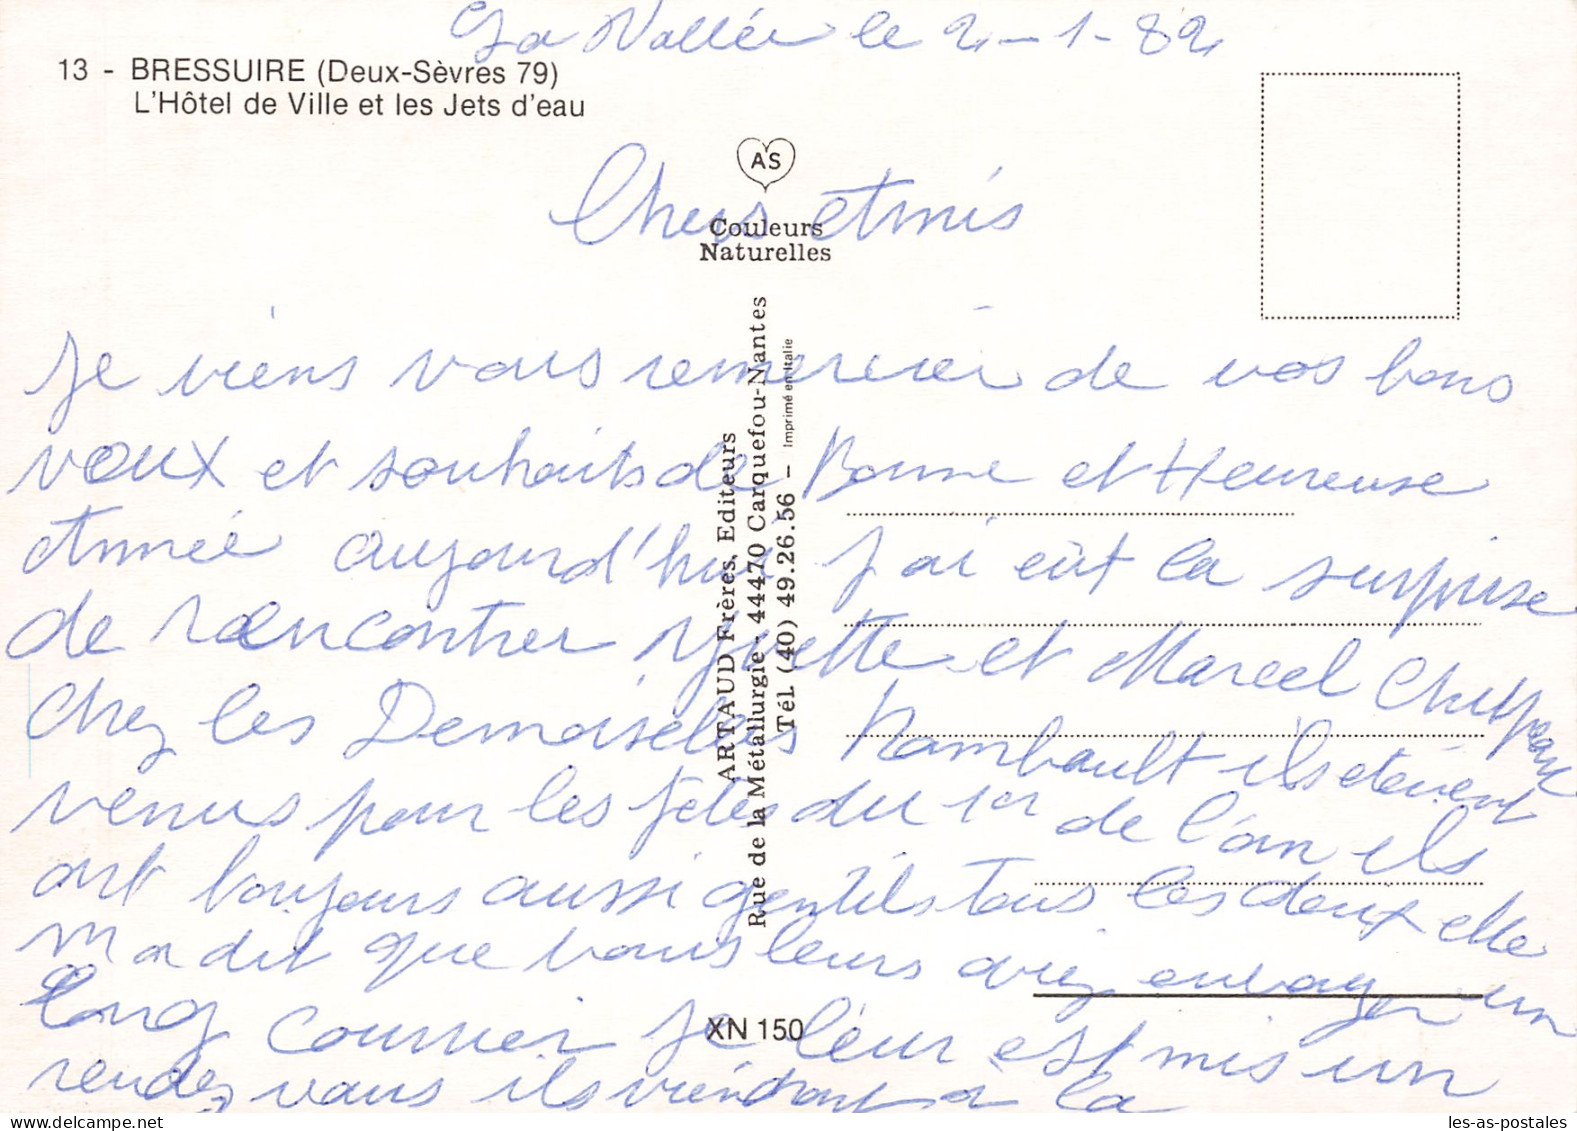 La Vallée le 2-1-82
13 - BRESSUIRE (Deux-Sèvres 79)
L'Hôtel de Ville et les Jets d'eau
AS
Couleurs
Naturelles
Chers Amis
Je viens vous remercier de vos bons
voeux et souhaits de Bonne et Heureuse
Année aujourd'hui j'ai eùt la surprise
de raencontrer Yvette et Marcel
chez les Demoiselas Rambault ils étaient
venus pour les fetes du 1er de l'an ils
ont toujours aussi gentils tous les deux elle
m a dit que vous leurs aviez envoyer un
long courrier je leur est mis un
rendez vous ils viendront a la
ARTAUD Frères, Editeurs
Rue de la Métallurgie - 44470 Carquefou-Nantes
Tél (40) 49.26.56 - Imprimé en Italie
XN 150
delcampe.net
les-as-postales